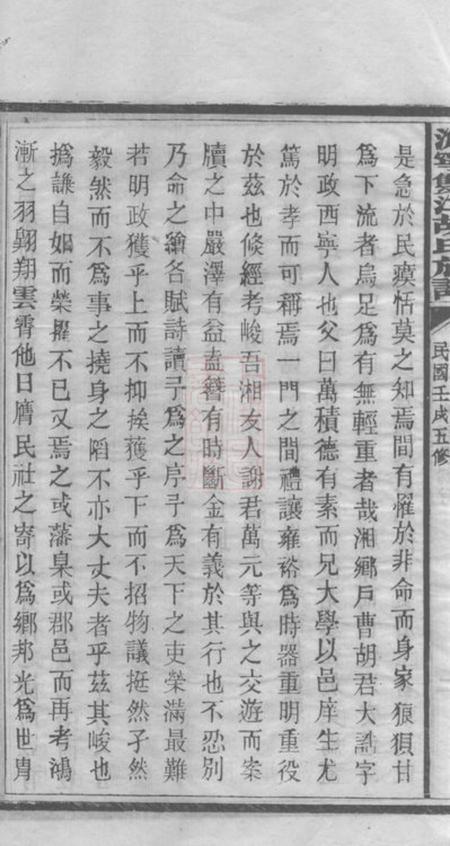 溈寧雙江胡氏族譜
民國壬戌五修
是急於民瘼恬莫之知焉間有罹於非命而身家狼狽甘
爲下流者烏足爲有無輕重者哉湘鄉戶曹胡君大誥字
明政西寧人也父曰萬積德有素而兄大學以邑庠生尤
篤於孝而可稱焉一門之間禮讓雍裕爲時器重明重役
於茲也候經考峻吾湘友人謝君萬元等與之交遊而案
牘之中嚴澤有益盍簪有時斷金有義於其行也不忍別
乃命之繪各賦詩讀予爲之序予爲天下之吏榮滿最難
若明政獲乎上而不抑挨獲乎下而不招物議挺然孑然
毅然而不爲事之撓身之陷不亦大丈夫者乎茲其峻也
撝謙自如而榮擢不已又焉之或藩臬或郡邑而再考鴻
漸之羽翺翔雲霄他日膺民社之寄以爲鄉邦光爲世胄